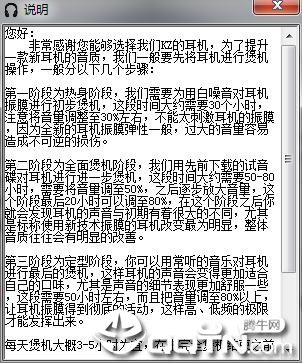 说明
您好：
非常感谢您能够选择我们KZ的耳机，为了提升
一款新耳机的音质，我们一般要先将耳机进行煲机
操作，一般分以下几个步骤：
第一阶段为热身阶段，我们需要为用白噪音对耳机
振膜进行初步煲机，这段时间大约需要30个小时，
注意将音量调整至30%左右，不能太刺激耳机的振膜
，因为全新的耳机振膜弹性一般，过大的音量容易
造成不可逆的损伤。
第二阶段为全面煲机阶段，我们用先前下载的试音
碟对耳机进行进一步煲机，这段时间大约需要50-80
小时，需要将音量调至50%，之后逐步放大音量，这
个阶段最后20小时可以调至80%，在这个阶段之后你
就会发现耳机的声音与初期有着很大的不同，尤其
是标称使用新技术振膜的耳机改变最为明显，整体
音质往往会有明显的改善。
第三阶段为定型阶段，你可以用常听的音乐对耳机
进行最后的煲机，这样耳机的声音会变得更加适合
自己的口味，尤其是声音的细节表现更加舒服一些
，这段需要50小时左右，而且把音量调至80%以上，
让耳机振膜得到彻底的活动，这样高、低频的极限
才能发挥出来。
每天煲机大概3-5小时为宜，在
腾牛网